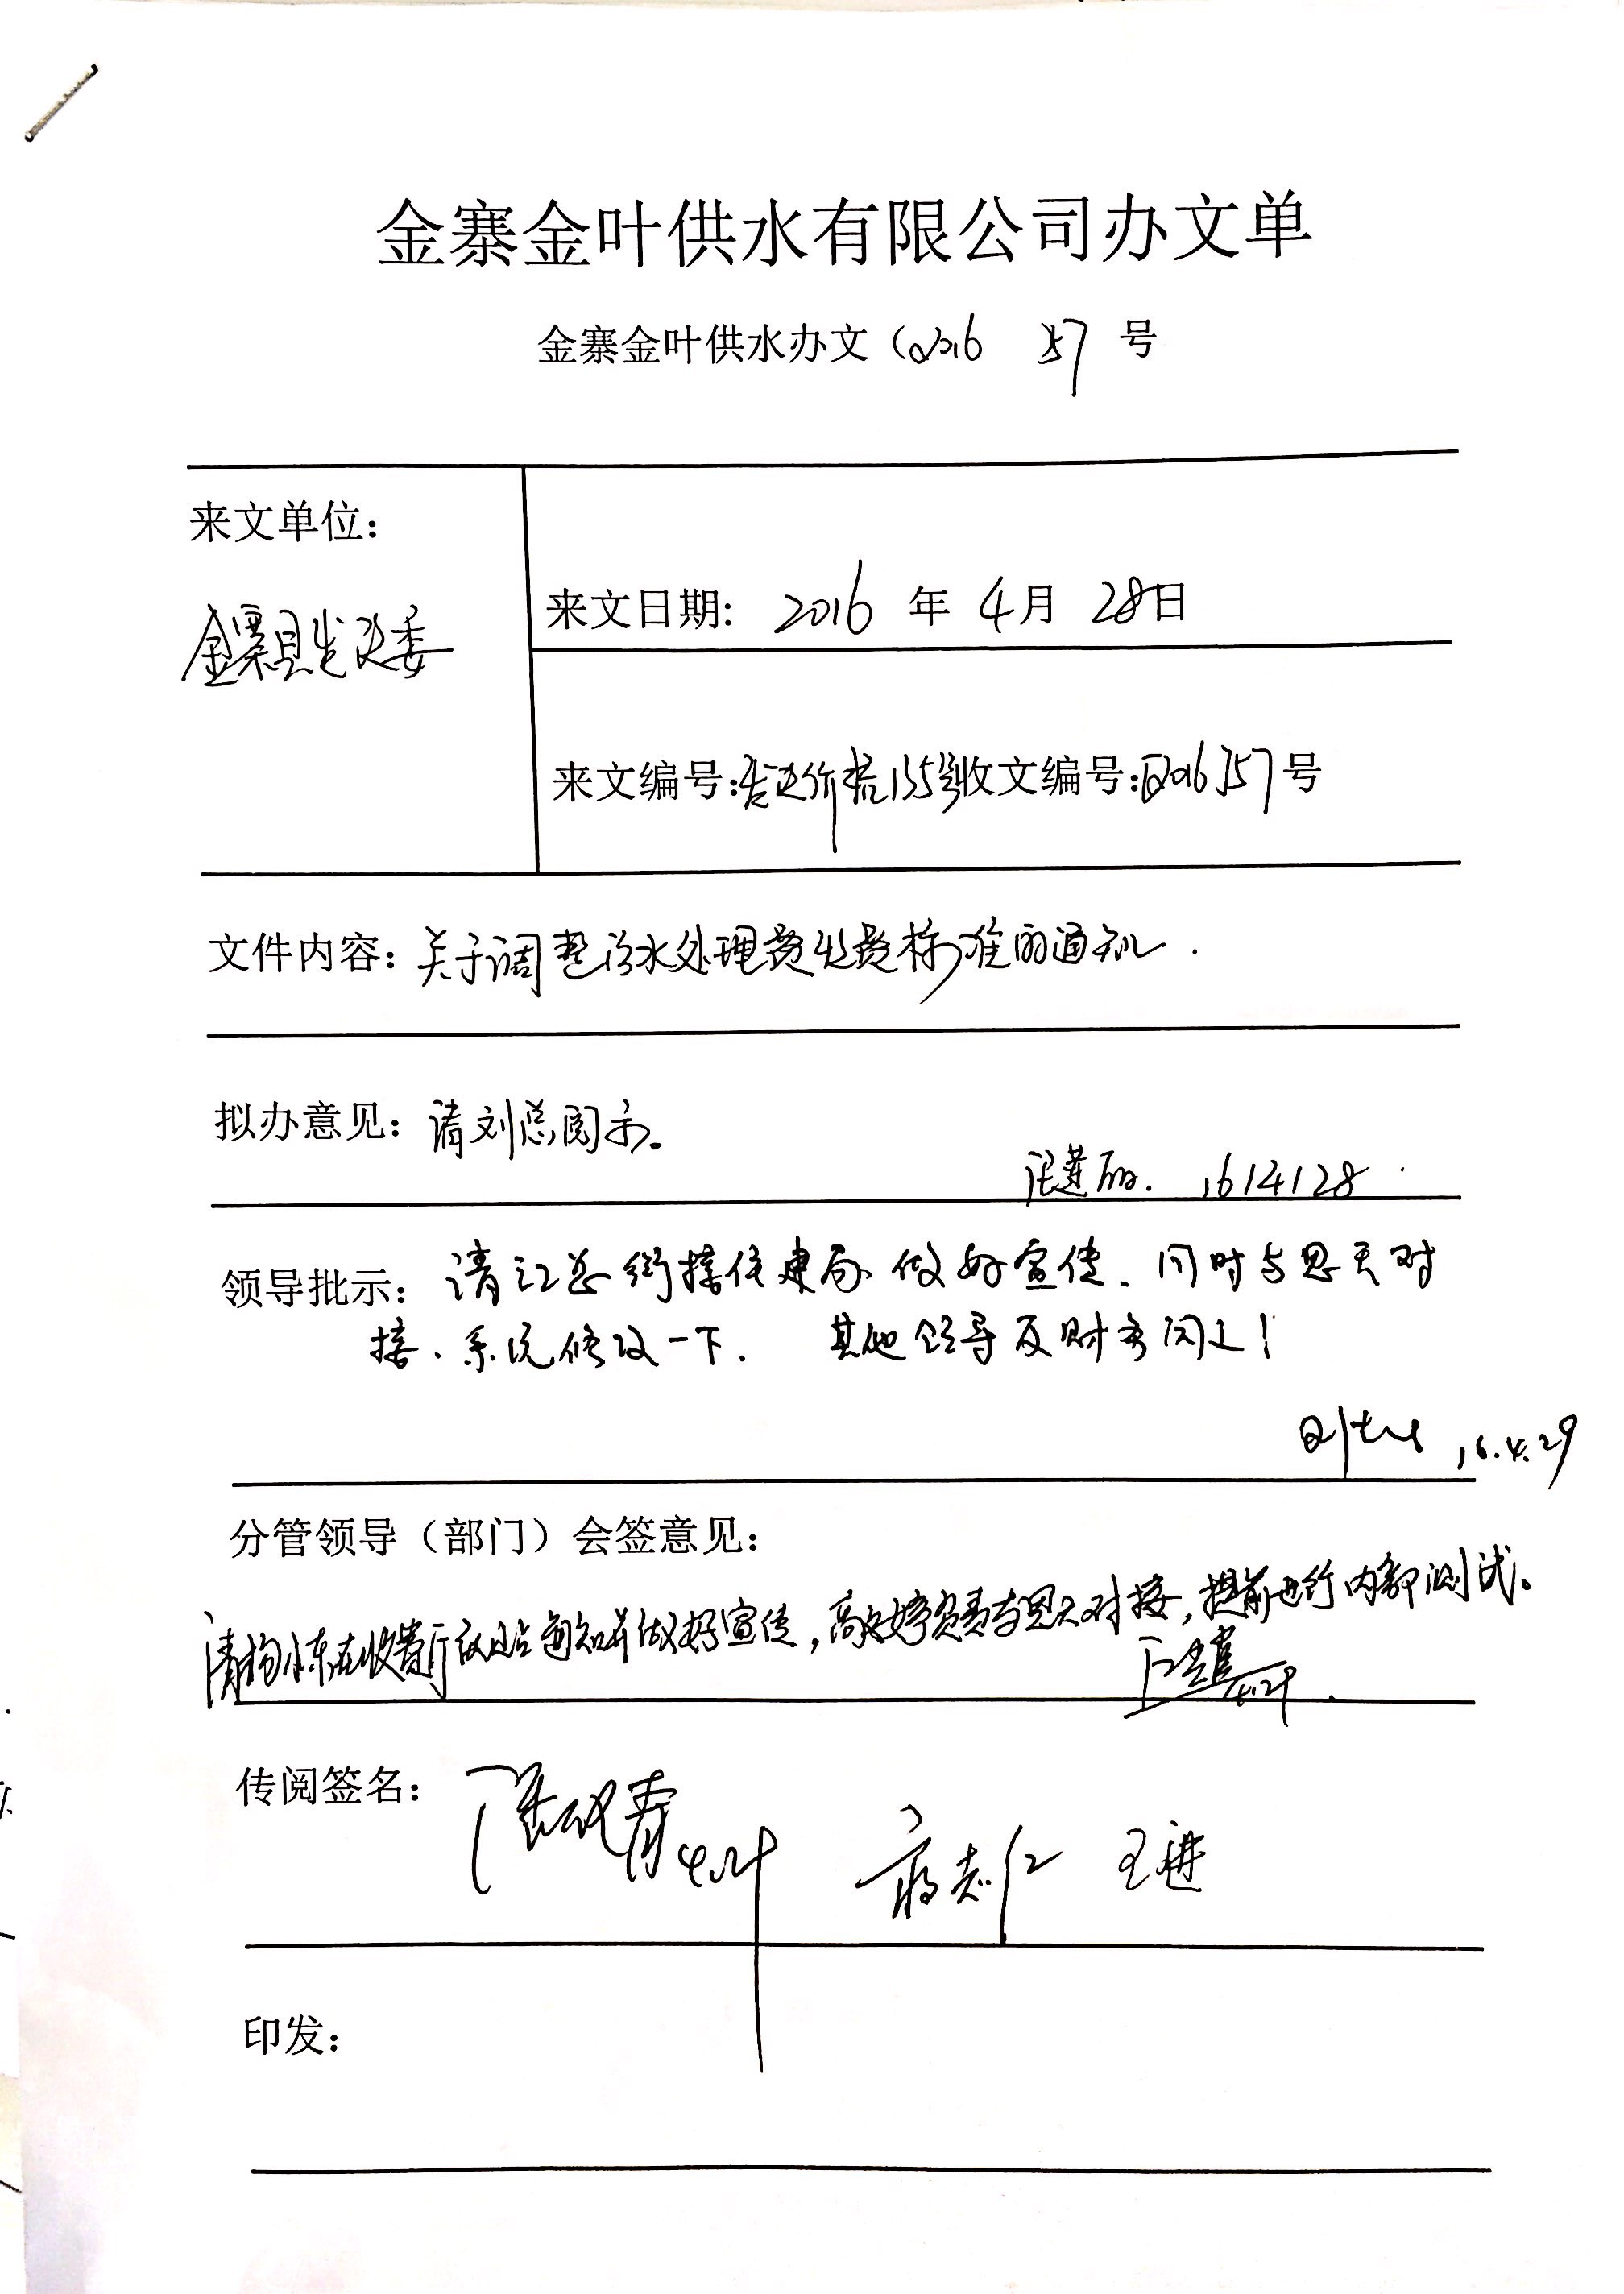 金寨金叶供水有限公司办文单
金寨金叶供水办文（2016 357 号
来文单位：
金寨县发改委
来文日期： 2016 年 4月 28日
来文编号：发改价格135号收文编号：2016 357号
文件内容：关于调整污水处理费收费标准的通知.
拟办意见：请刘总阅示。
16/4/28
领导批示：请江总衔接住建局做好宣传、同时与思天对
接、系统修改一下. 其他领导及财务阅之！
16.4.29
分管领导（部门）会签意见：
请杨小东在收费厅 通知并做好宣传，高 婷负责与思天对接，提前进行内部测试。
传阅签名： 青 4.29 蒋志仁 王进
印发：